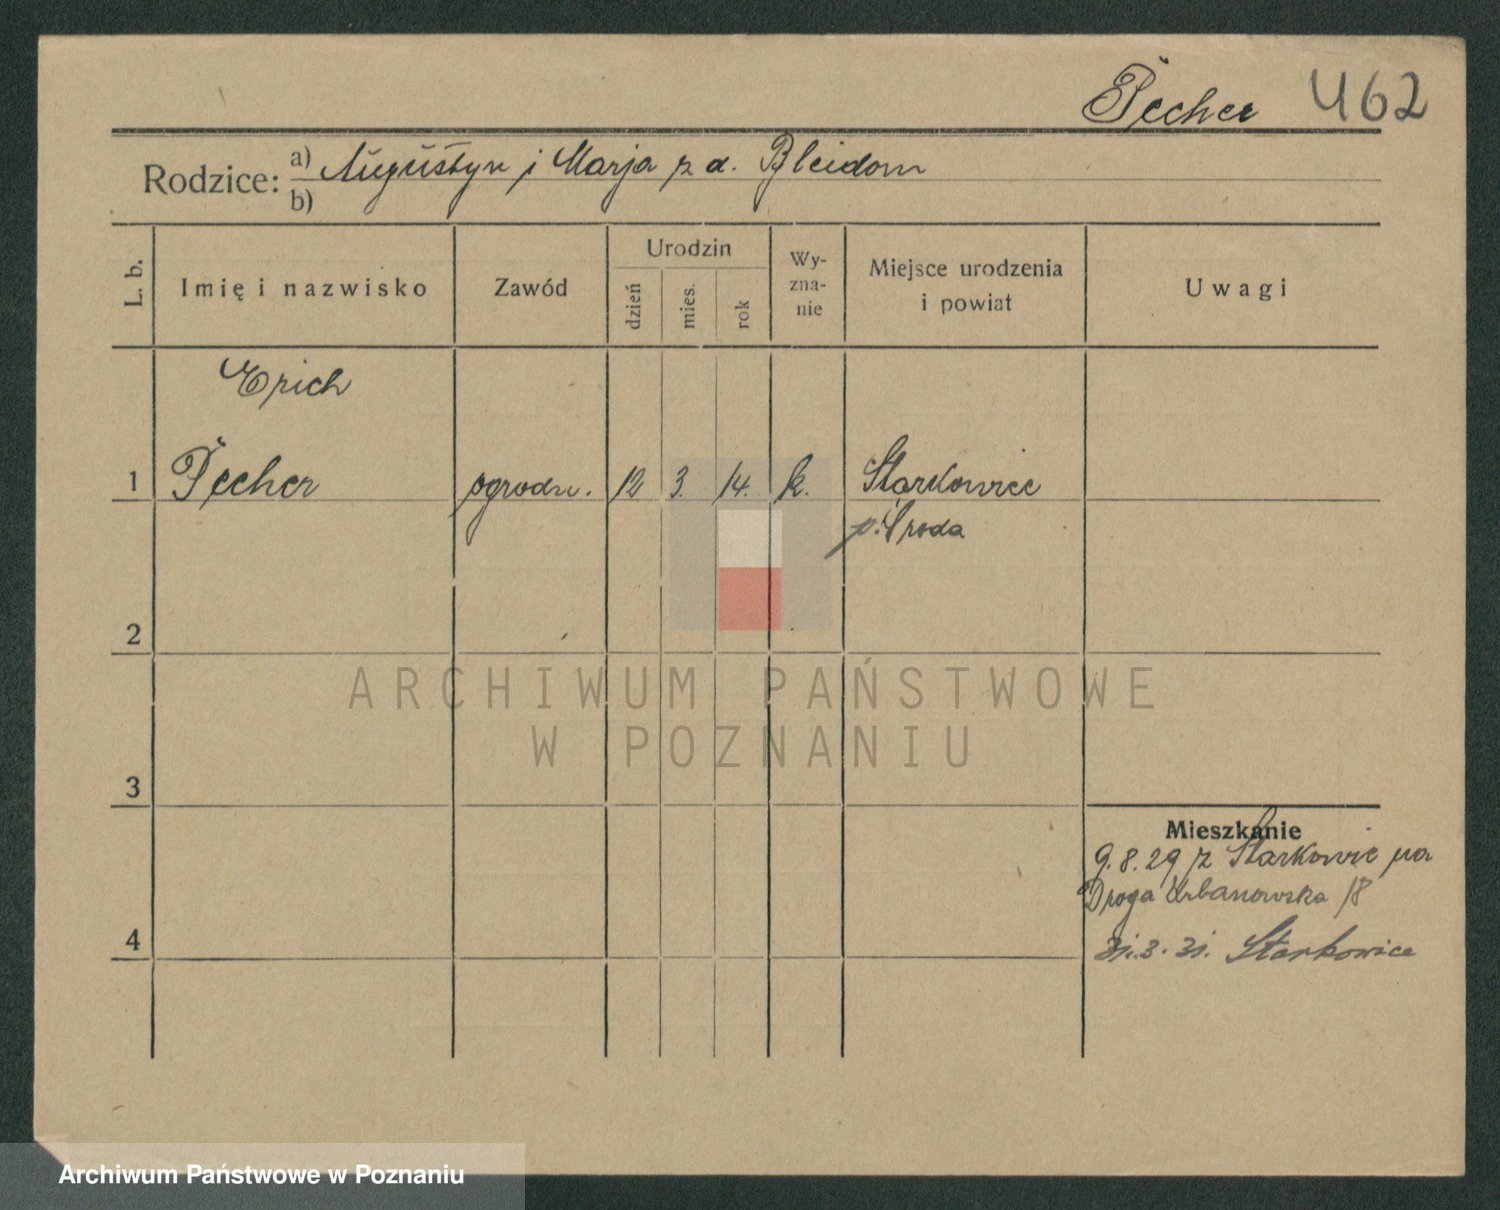 Pecher 462
Rodzice: a) Augustyn i Marja z d. Bleidorn
b)
L. b. Imię i nazwisko Zawód Urodzin dzień mies. rok Wy-zna-nie Miejsce urodzenia i powiat Uwagi
Erich
1 Pecher ogrodn. 12 3. 14. k. Starkowiec
p. Środa
2
3
Mieszkanie
9.8.29 z Starkowic na
Droga Urbanowska 18
4
31.3.31. Starkowice
ARCHIWUM PAŃSTWOWE
W POZNANIU
Archiwum Państwowe w Poznaniu